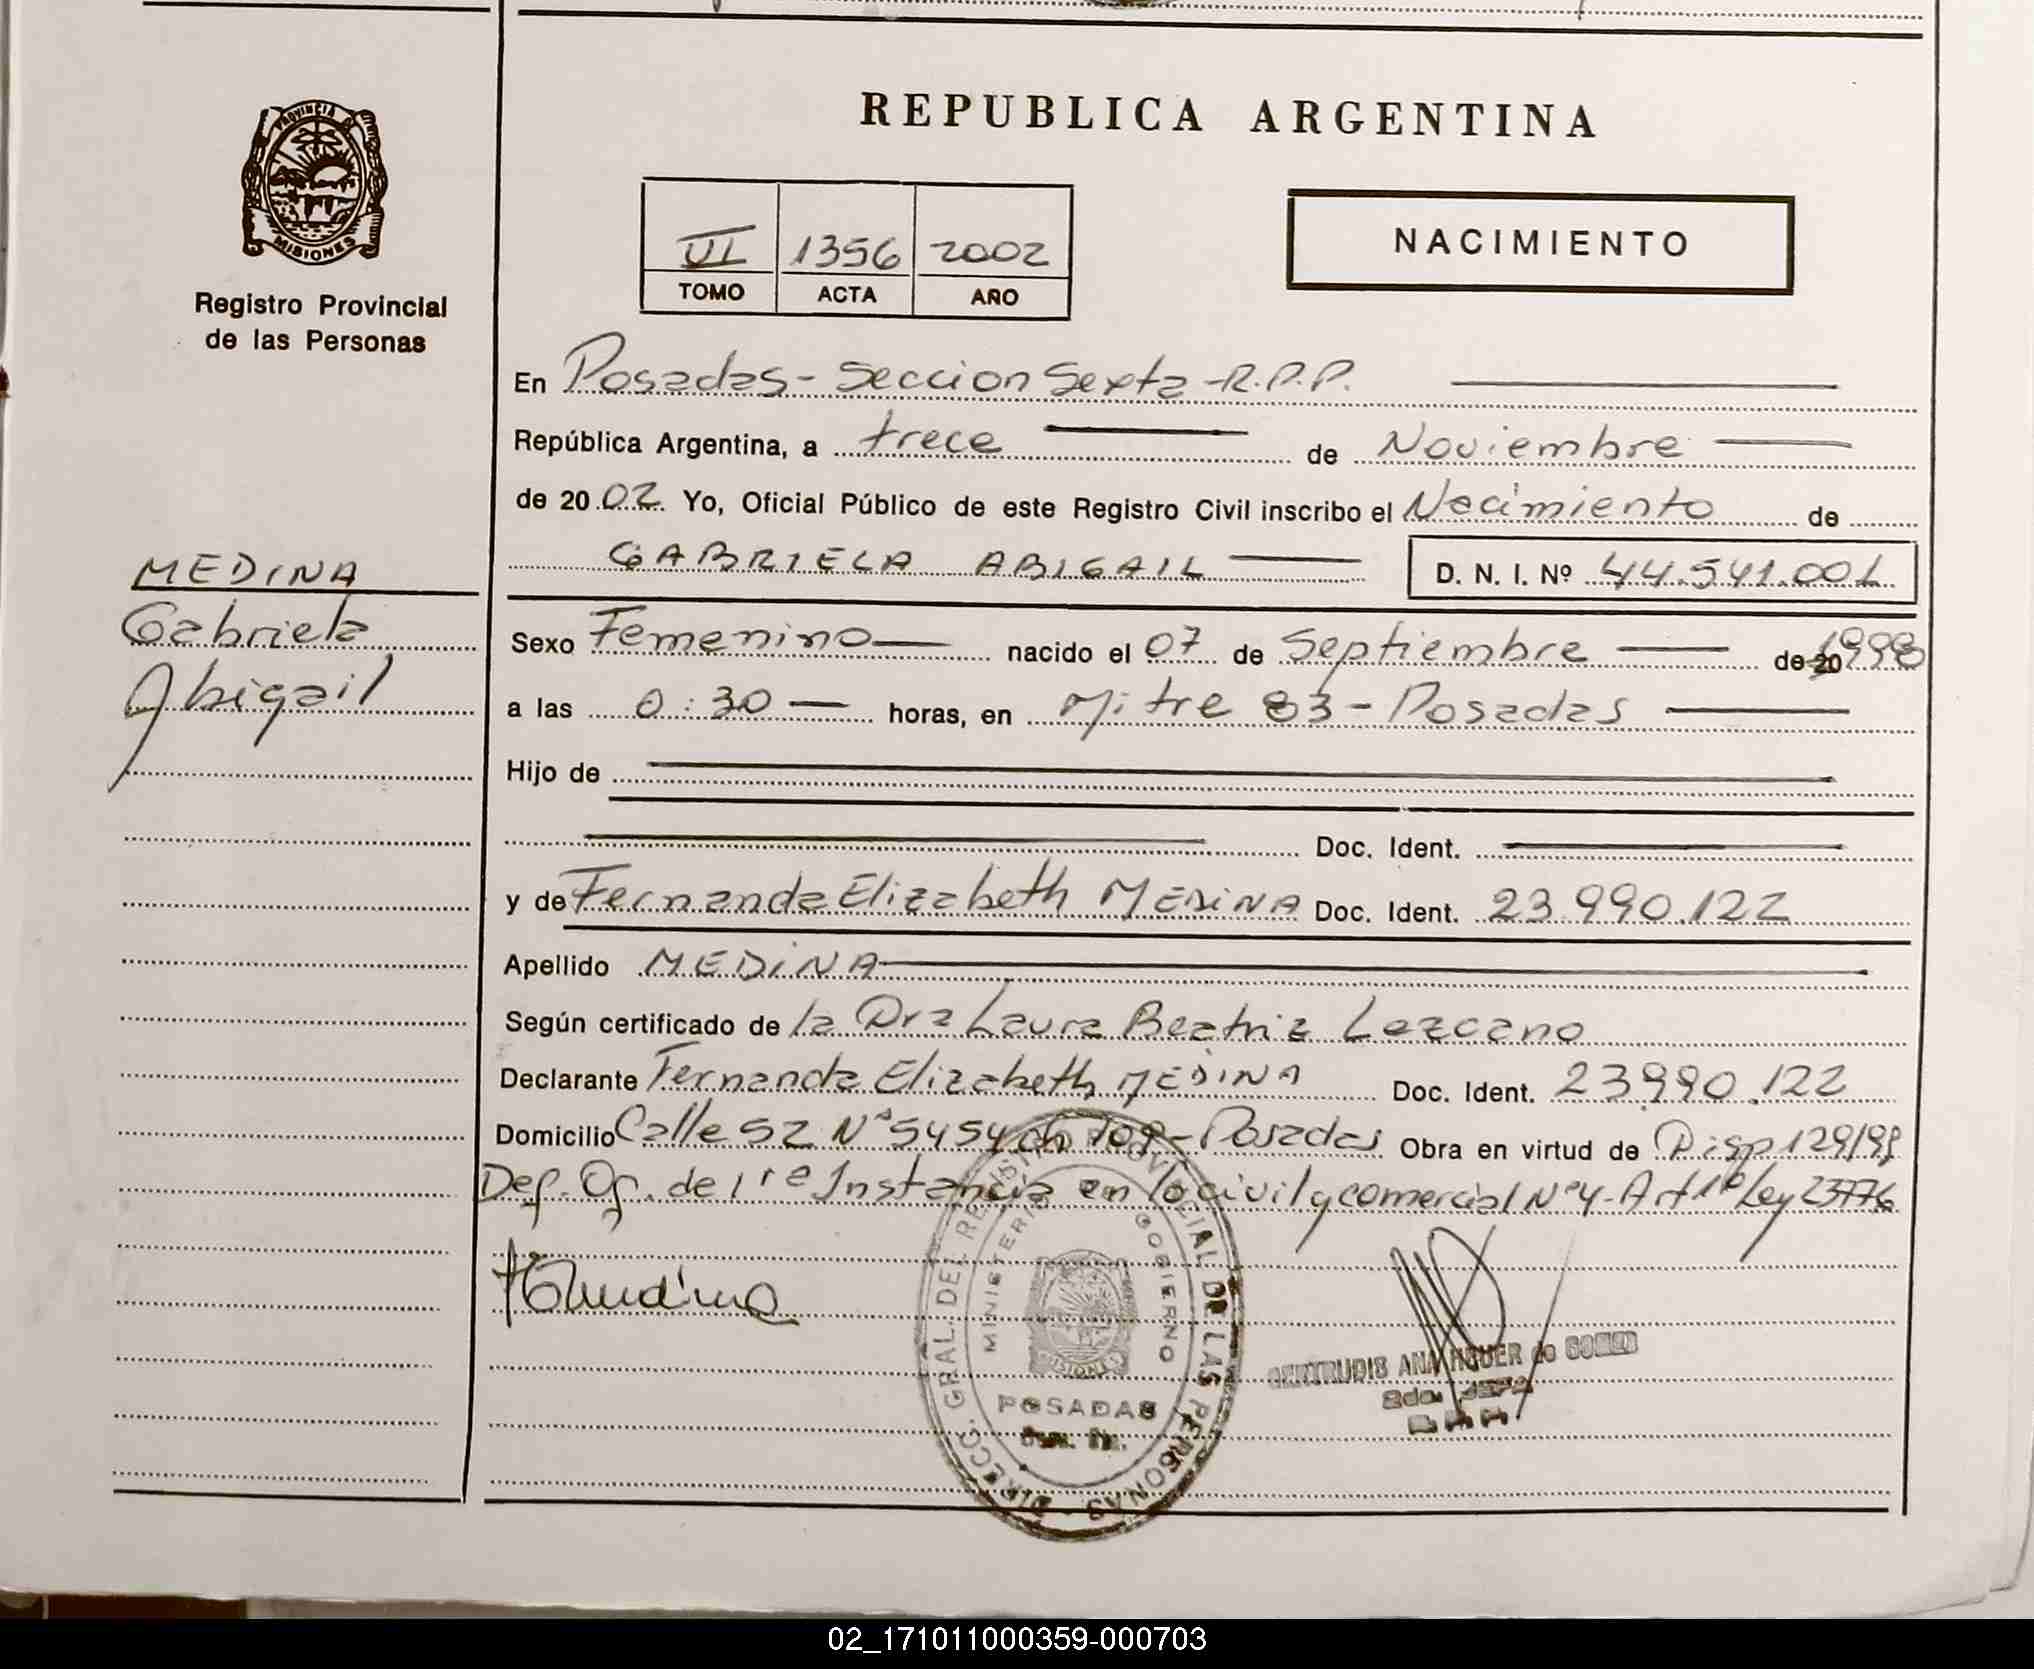 REPUBLICA ARGENTINA
PROVINCIA DE
MISIONES
Registro Provincial
de las Personas
VI 1356 2002
TOMO ACTA AÑO
NACIMIENTO
En Posadas - Seccion Sexta - R.P.P.
República Argentina, a trece de Noviembre
de 2002. Yo, Oficial Público de este Registro Civil inscribo el Nacimiento de
GABRIELA ABIGAIL D. N. I. Nº 44.541.001
MEDINA
Gabriela
Abigail
Sexo Femenino nacido el 07 de Septiembre de 20 1998
a las 0:30 horas, en Mitre 83 - Posadas
Hijo de
Doc. Ident.
y de Fernanda Elizabeth MEDINA Doc. Ident. 23.990.122
Apellido MEDINA
Según certificado de la Dra Laura Beatriz Lezcano
Declarante Fernanda Elizabeth MEDINA Doc. Ident. 23.990.122
Domicilio Calle 52 Nº 5454 ch 109 - Posadas Obra en virtud de Disp 129/98
Def. Of. de 1ra Instancia en lo civil y comercial Nº 4 - Art 1º Ley 23776
DIRECC. GRAL. DEL REGISTRO PROVINCIAL DE LAS PERSONAS
MINISTERIO GOBIERNO
MISIONES
POSADAS
GERTRUDIS ANA de GOMEZ
2do. JEFE
02_171011000359-000703